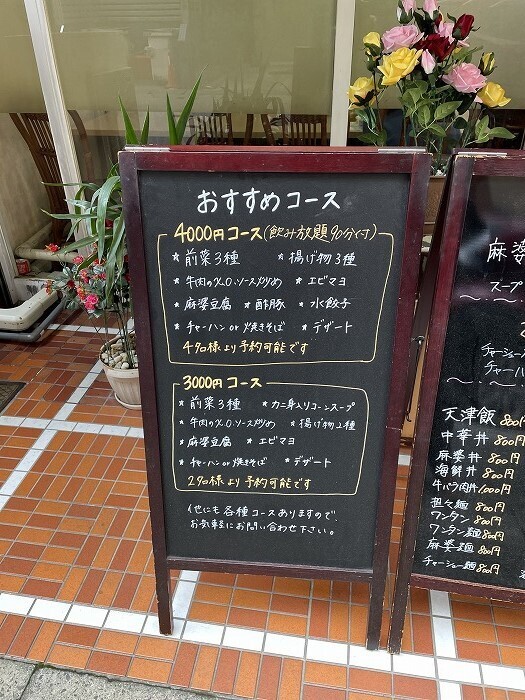 おすすめコース
4000円コース(飲み放題90分付)
* 前菜3種 * 揚げ物3種
* 牛肉のX.O.ソース炒め * エビマヨ
* 麻婆豆腐 * 酢豚 * 水餃子
* チャーハン or 焼きそば * デザート
4名様より予約可能です
3000円コース
* 前菜3種 * カニ身入りコーンスープ
* 牛肉のX.O.ソース炒め * 揚げ物2種
* 麻婆豆腐 * エビマヨ
* チャーハン or 焼きそば * デザート
2名様より予約可能です
他にも各種コースありますので、
お気軽にお問い合わせ下さい。
麻婆
スープ
チャーシュー
チャーハ
天津飯 800円
中華丼 800円
麻婆丼 800円
海鮮丼 800円
牛バラ肉丼 1000円
担々麺 800円
ワンタン 800円
ワンタン麺 800円
麻婆麺 800円
チャーシュー麺 800円